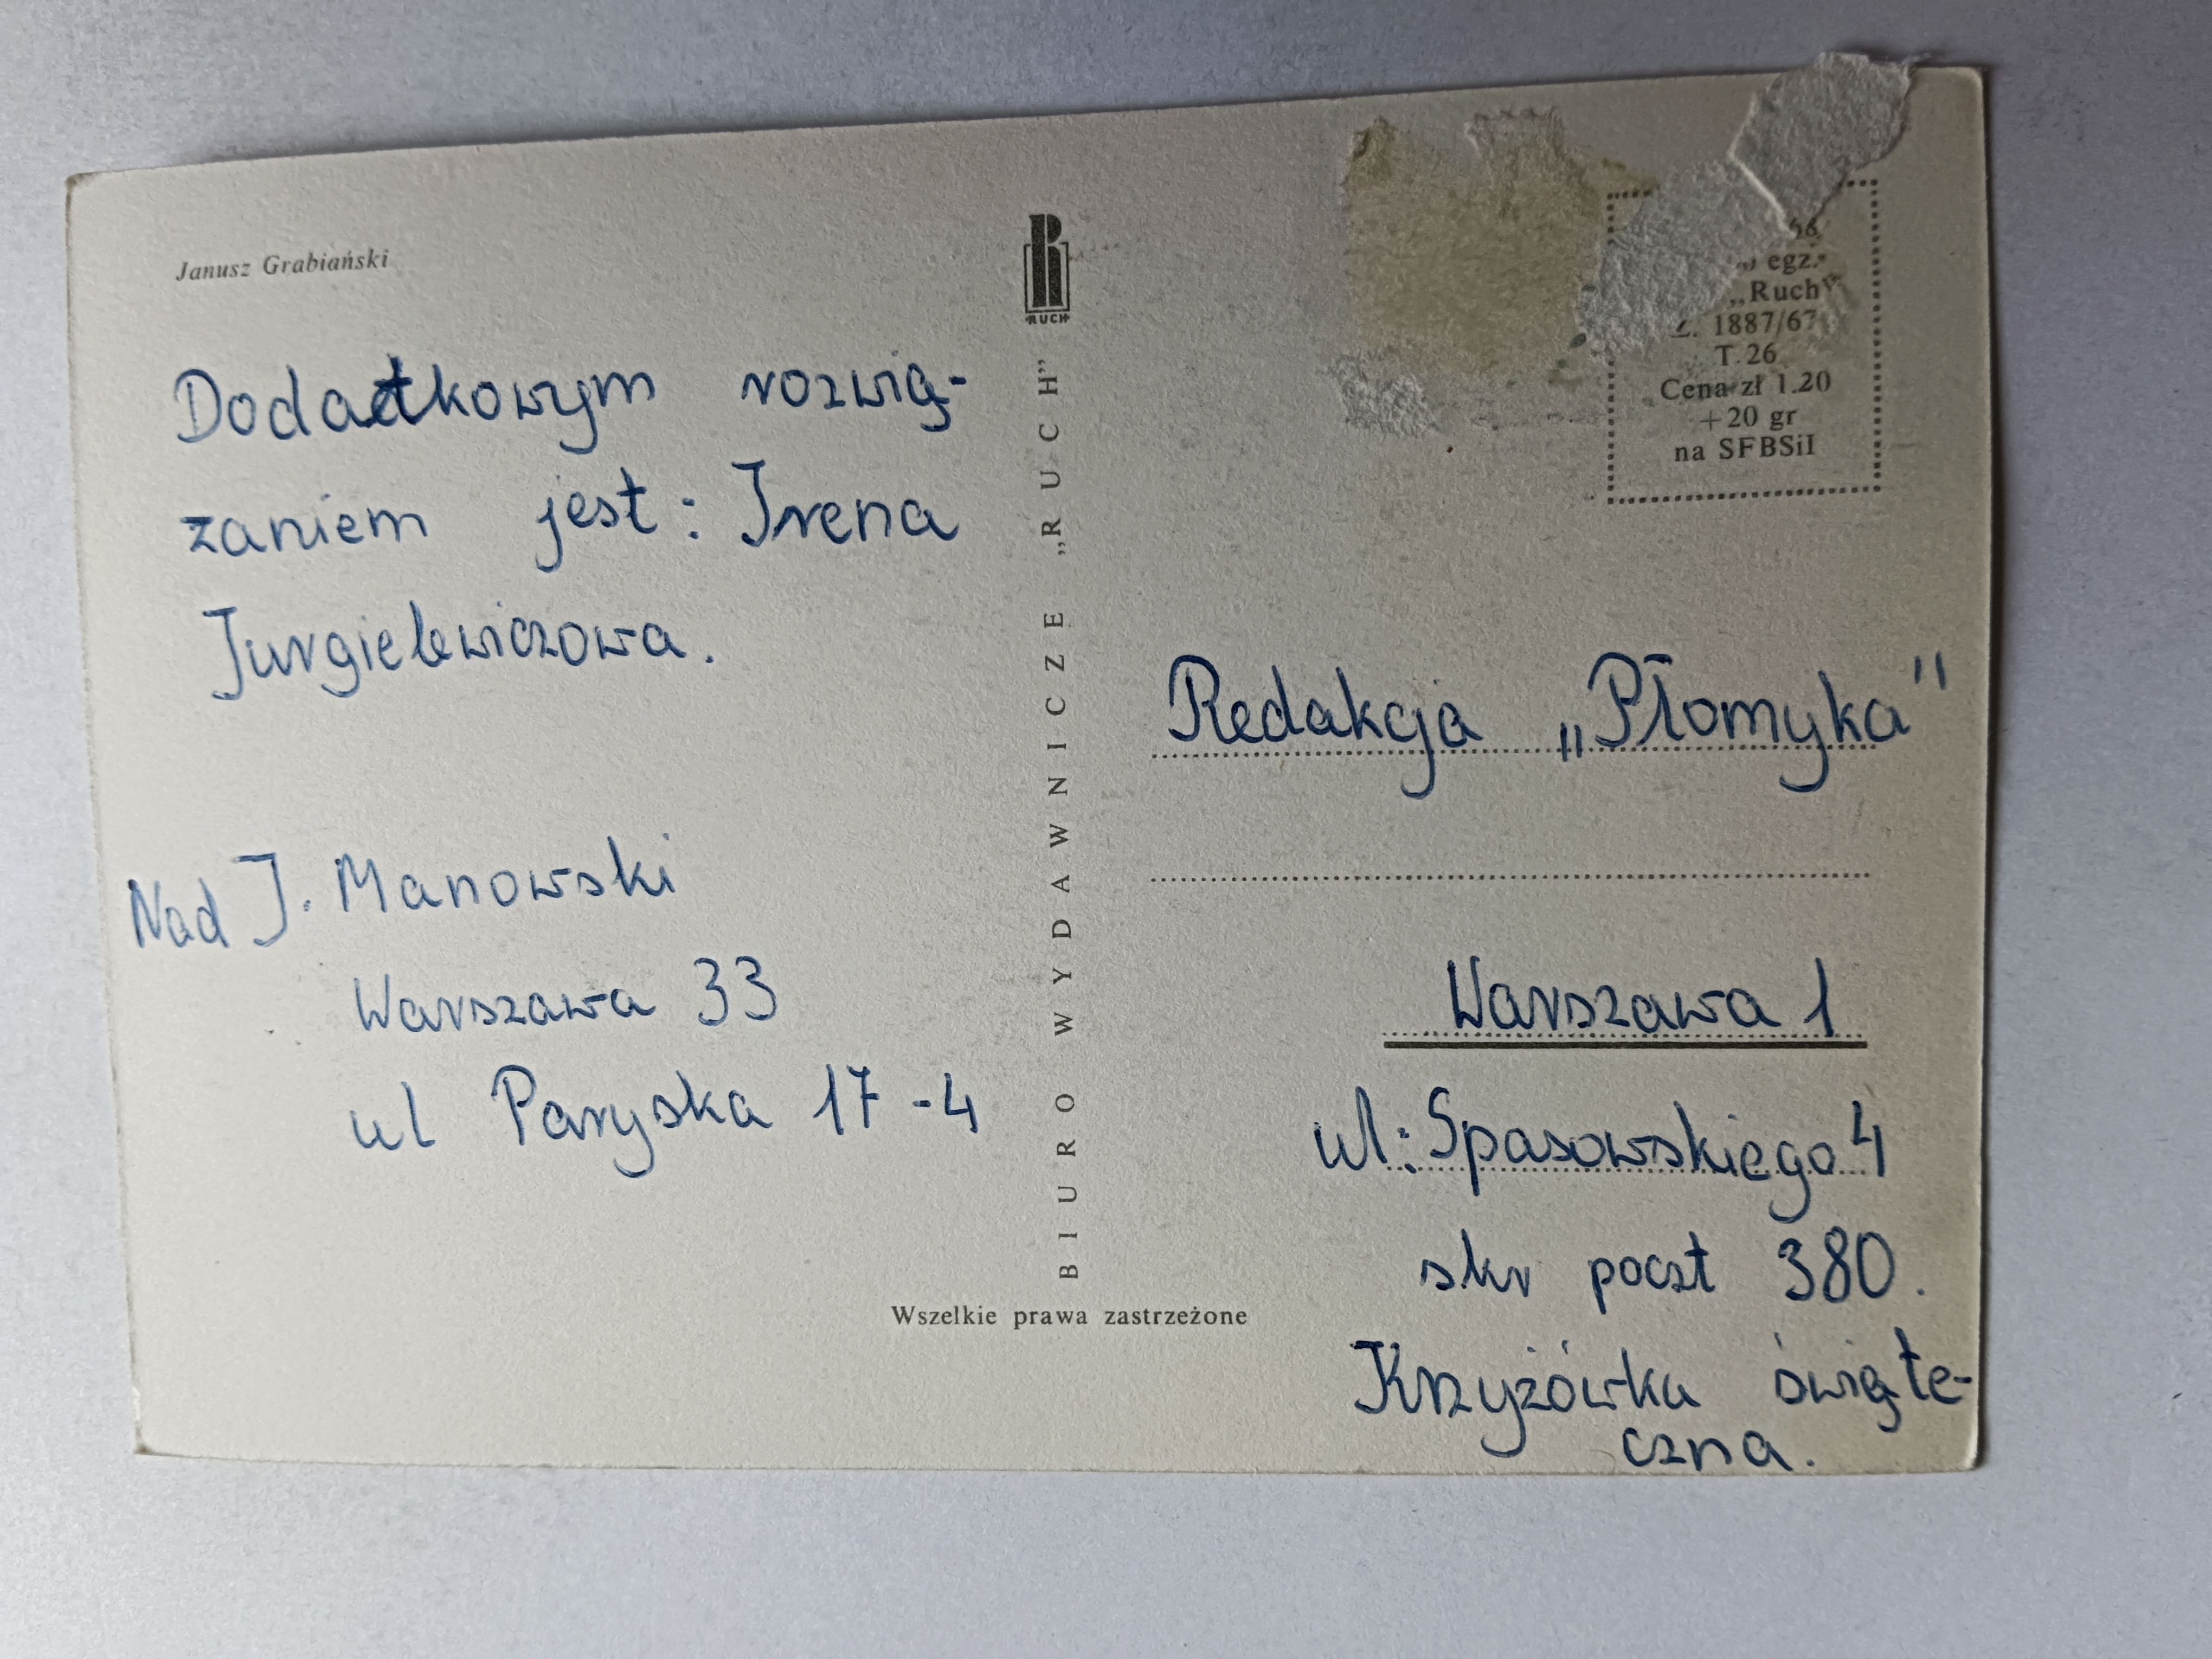 Janusz Grabiański
Dodatkowym rozwią-
zaniem jest: Irena
Jurgielewiczowa.
Nad J. Manowski
Warszawa 33
ul Paryska 17-4
RUCH
BIURO WYDAWNICZE „RUCH”
Wszelkie prawa zastrzeżone
egz.
„Ruch”
Z. 1887/67
T. 26
Cena zł 1.20
+20 gr
na SFBSiI
Redakcja „Płomyka”
Warszawa 1
ul: Spasowskiego 4
skr poczt 380.
Krzyżówka święte-
czna.